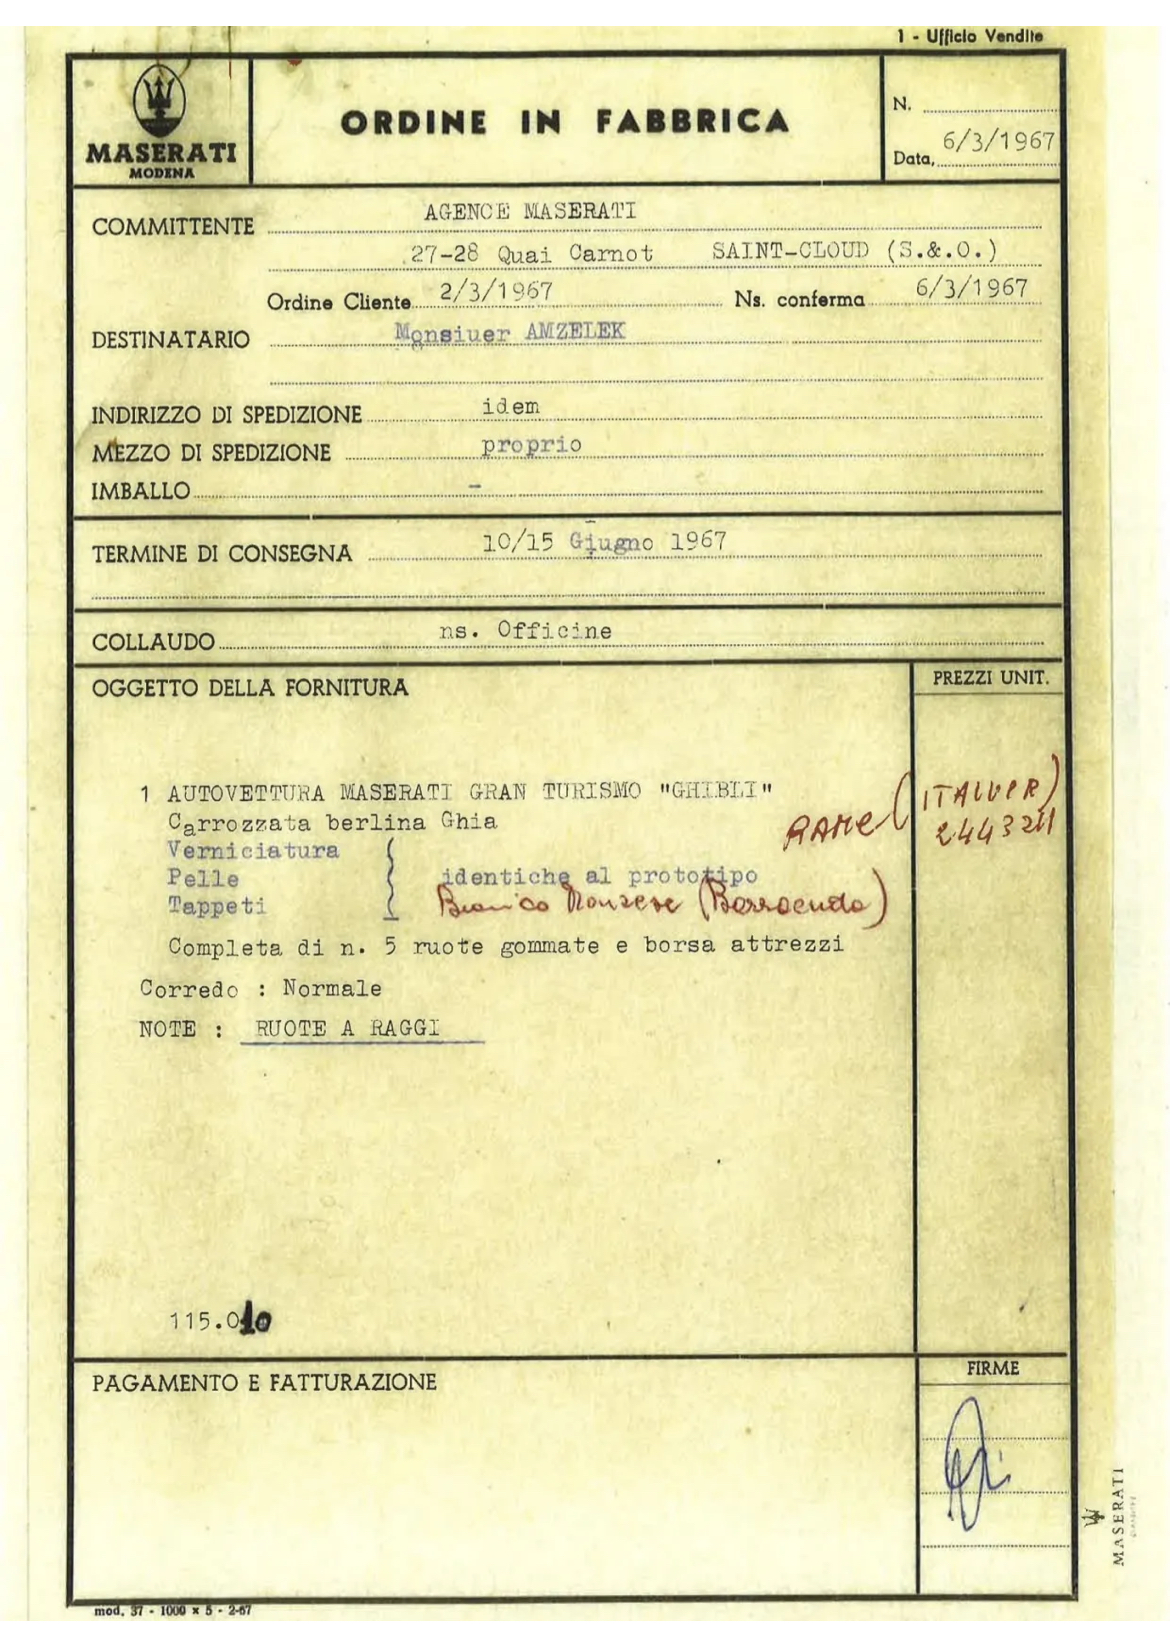 1 - Ufficio Vendite
MASERATI
MODENA
ORDINE IN FABBRICA
N.
Data, 6/3/1967
COMMITTENTE AGENCE MASERATI
27-28 Quai Carnot SAINT-CLOUD (S.&.O.)
Ordine Cliente 2/3/1967 Ns. conferma 6/3/1967
DESTINATARIO Monsiuer AMZELEK
INDIRIZZO DI SPEDIZIONE idem
MEZZO DI SPEDIZIONE proprio
IMBALLO -
TERMINE DI CONSEGNA 10/15 Giugno 1967
COLLAUDO ns. Officine
OGGETTO DELLA FORNITURA
PREZZI UNIT.
1 AUTOVETTURA MASERATI GRAN TURISMO "GHIBLI"
RAME (ITALVER)
Carrozzata berlina Ghia
Verniciatura
Pelle identiche al prototipo
Tappeti Bianco
Completa di n. 5 ruote gommate e borsa attrezzi
Corredo : Normale
NOTE : RUOTE A RAGGI
115.010
PAGAMENTO E FATTURAZIONE
FIRME
MASERATI
mod. 37 - 1000 x 5 - 2-67